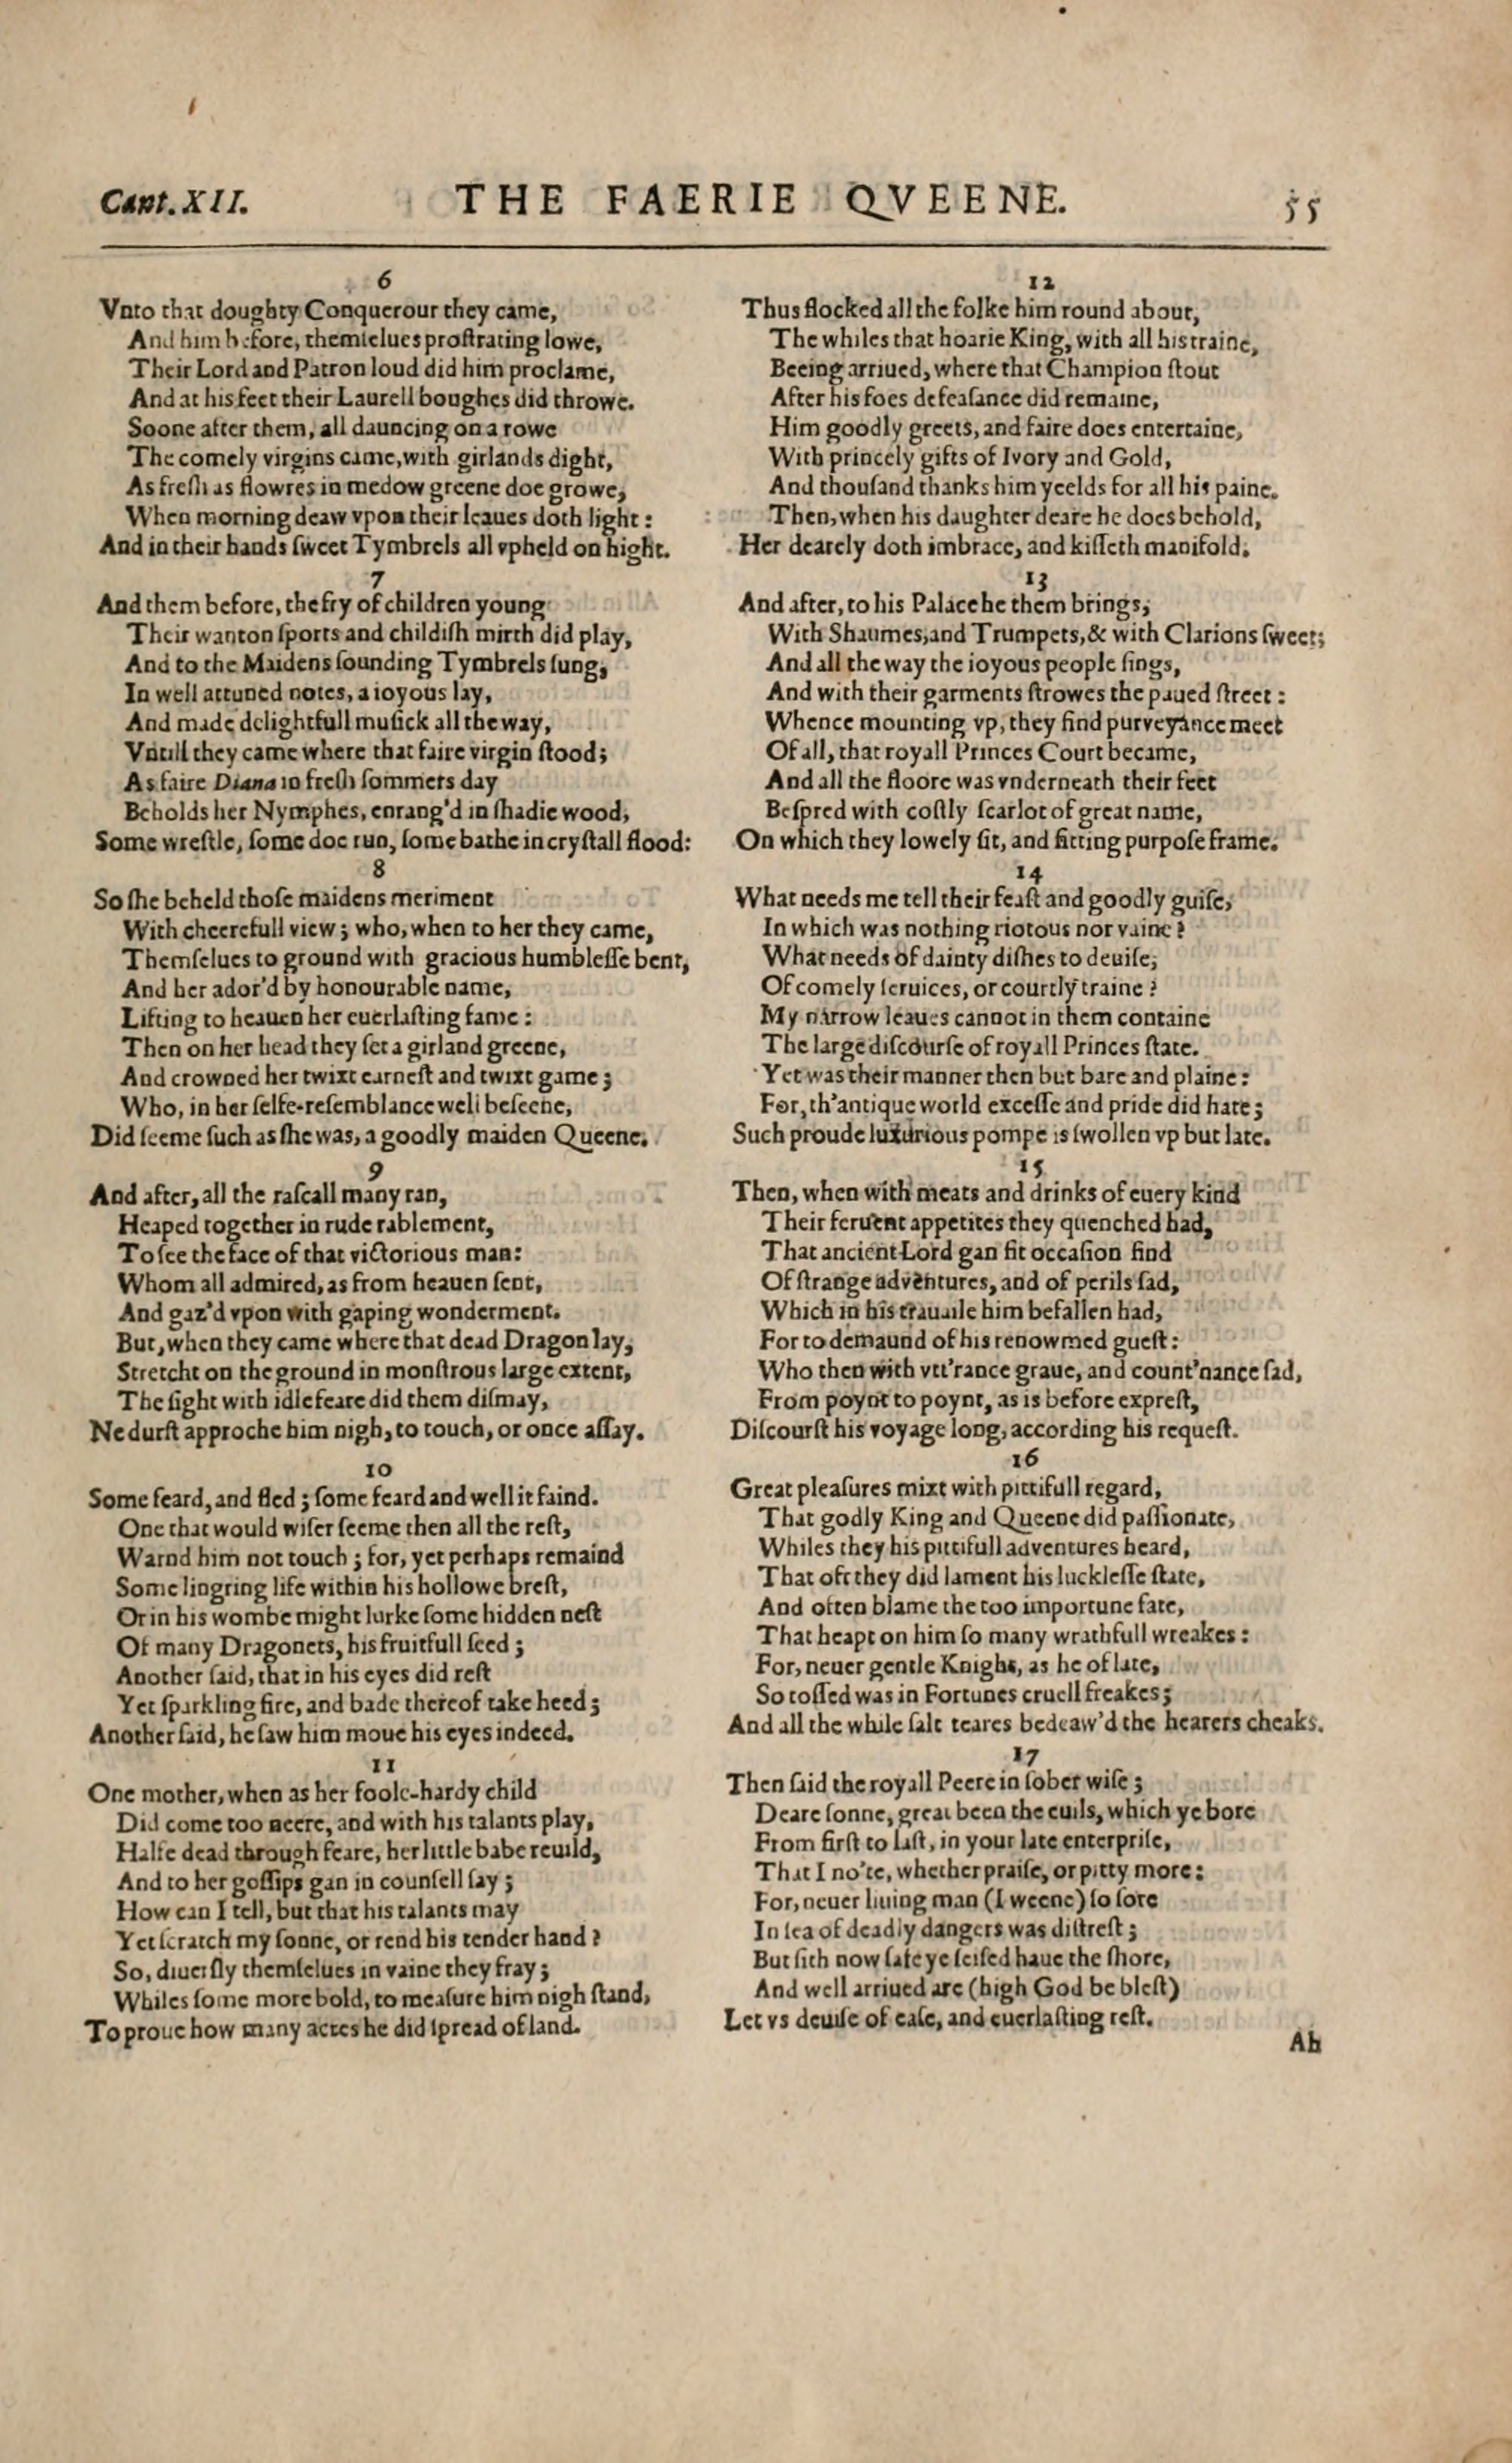 Cant. XII. THE FAERIE QVEENE. 55
6
Vnto that doughty Conquerour they came,
And him before, themſelues proſtrating lowe,
Their Lord and Patron loud did him proclame,
And at his feet their Laurell boughes did throwe.
Soone after them, all dauncing on a rowe
The comely virgins came, with girlands dight,
As freſh as flowres in medow greene doe growe,
When morning deaw vpon their leaues doth light:
And in their hands ſweet Tymbrels all vpheld on hight.
7
And them before, the fry of children young
Their wanton ſports and childiſh mirth did play,
And to the Maidens ſounding Tymbrels ſung,
In well attuned notes, a ioyous lay,
And made delightfull muſick all the way,
Vntill they came where that faire virgin ſtood;
As faire Diana in freſh ſommers day
Beholds her Nymphes, enrang'd in ſhadie wood,
Some wreſtle, ſome doe run, ſome bathe in cryſtall flood:
8
So ſhe beheld thoſe maidens meriment
With cheerefull view; who, when to her they came,
Themſelues to ground with gracious humbleſſe bent,
And her ador'd by honourable name,
Lifting to heauen her euerlaſting fame:
Then on her head they ſet a girland greene,
And crowned her twixt earneſt and twixt game;
Who, in her ſelfe-reſemblance well beſeene,
Did ſeeme ſuch as ſhe was, a goodly maiden Queene.
9
And after, all the raſcall many ran,
Heaped together in rude rablement,
To ſee the face of that victorious man:
Whom all admired, as from heauen ſent,
And gaz'd vpon with gaping wonderment.
But, when they came where that dead Dragon lay,
Stretcht on the ground in monſtrous large extent,
The ſight with idle feare did them diſmay,
Ne durſt approche him nigh, to touch, or once aſſay.
10
Some feard, and fled; ſome feard and well it faind.
One that would wiſer ſeeme then all the reſt,
Warnd him not touch; for, yet perhaps remaind
Some lingring life within his hollowe breſt,
Or in his wombe might lurke ſome hidden neſt
Of many Dragonets, his fruitfull ſeed;
Another ſaid, that in his eyes did reſt
Yet ſparkling fire, and bade thereof take heed;
Another ſaid, he ſaw him moue his eyes indeed.
11
One mother, when as her foole-hardy child
Did come too neere, and with his talants play,
Halfe dead through feare, her little babe reuild,
And to her goſſips gan in counſell ſay;
How can I tell, but that his talants may
Yet ſcratch my ſonne, or rend his tender hand?
So, diuerſly themſelues in vaine they fray;
Whiles ſome more bold, to meaſure him nigh ſtand,
To proue how many acres he did ſpread of land.
12
Thus flocked all the folke him round about,
The whiles that hoarie King, with all his traine,
Beeing arriued, where that Champion ſtout
After his foes defeaſance did remaine,
Him goodly greets, and faire does entertaine,
With princely gifts of Ivory and Gold,
And thouſand thanks him yeelds for all his paine.
Then, when his daughter deare he does behold,
Her dearely doth imbrace, and kiſſeth manifold.
13
And after, to his Palace he them brings,
With Shaumes, and Trumpets, & with Clarions ſweet;
And all the way the ioyous people ſings,
And with their garments ſtrowes the paued ſtreet:
Whence mounting vp, they find purveyance meet
Of all, that royall Princes Court became,
And all the floore was vnderneath their feet
Beſpred with coſtly ſcarlot of great name,
On which they lowely ſit, and fitting purpoſe frame.
14
What needs me tell their feaſt and goodly guiſe,
In which was nothing riotous nor vaine?
What needs of dainty diſhes to deuiſe,
Of comely ſeruices, or courtly traine?
My narrow leaues cannot in them containe
The large diſcourſe of royall Princes ſtate.
Yet was their manner then but bare and plaine:
For, th'antique world exceſſe and pride did hate;
Such proude luxurious pompe is ſwollen vp but late.
15
Then, when with meats and drinks of euery kind
Their feruent appetites they quenched had,
That ancient Lord gan fit occaſion find
Of ſtrange adventures, and of perils ſad,
Which in his trauaile him befallen had,
For to demaund of his renowmed gueſt:
Who then with vtt'rance graue, and count'nance ſad,
From poynt to poynt, as is before expreſt,
Diſcourſt his voyage long, according his requeſt.
16
Great pleaſures mixt with pittifull regard,
That godly King and Queene did paſſionate,
Whiles they his pittifull adventures heard,
That oft they did lament his luckleſſe ſtate,
And often blame the too importune fate,
That heapt on him ſo many wrathfull wreakes:
For, neuer gentle Knight, as he of late,
So toſſed was in Fortunes cruell freakes;
And all the while ſalt teares bedeaw'd the hearers cheaks.
17
Then ſaid the royall Peere in ſober wiſe;
Deare ſonne, great been the euils, which ye bore
From firſt to laſt, in your late enterpriſe,
That I no'te, whether praiſe, or pitty more:
For, neuer liuing man (I weene) ſo ſore
In ſea of deadly dangers was diſtreſt;
But ſith now ſafe ye ſeiſed haue the ſhore,
And well arriued are (high God be bleſt)
Let vs deuiſe of eaſe, and euerlaſting reſt.
Ah